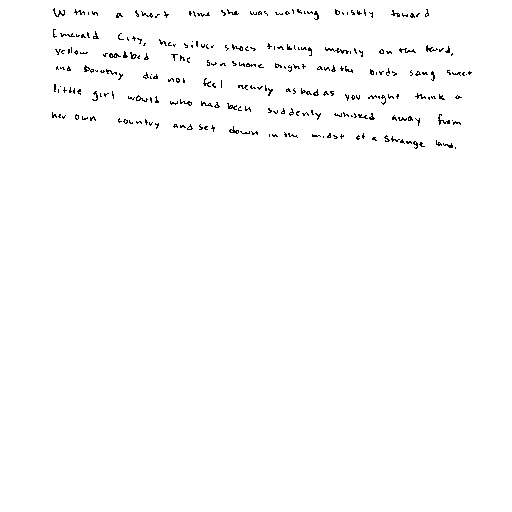 Within a short time she was walking briskly toward
Emerald City, her silver shoes tinkling merrily on the hard,
yellow roadbed The sun shone bright and the birds sang sweet
and Dorothy did not feel nearly as bad as you might think a
little girl would who had been suddenly whisked away from
her own country and set down in the midst of a strange land.